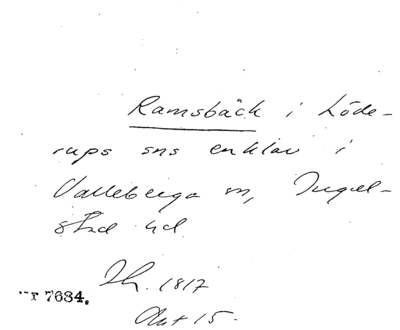 Ramsbäck i Löde-
rups sns enklav i
Valleberga sn, Ingel-
stad hd
Th. 1817
Akt 15.
7634.